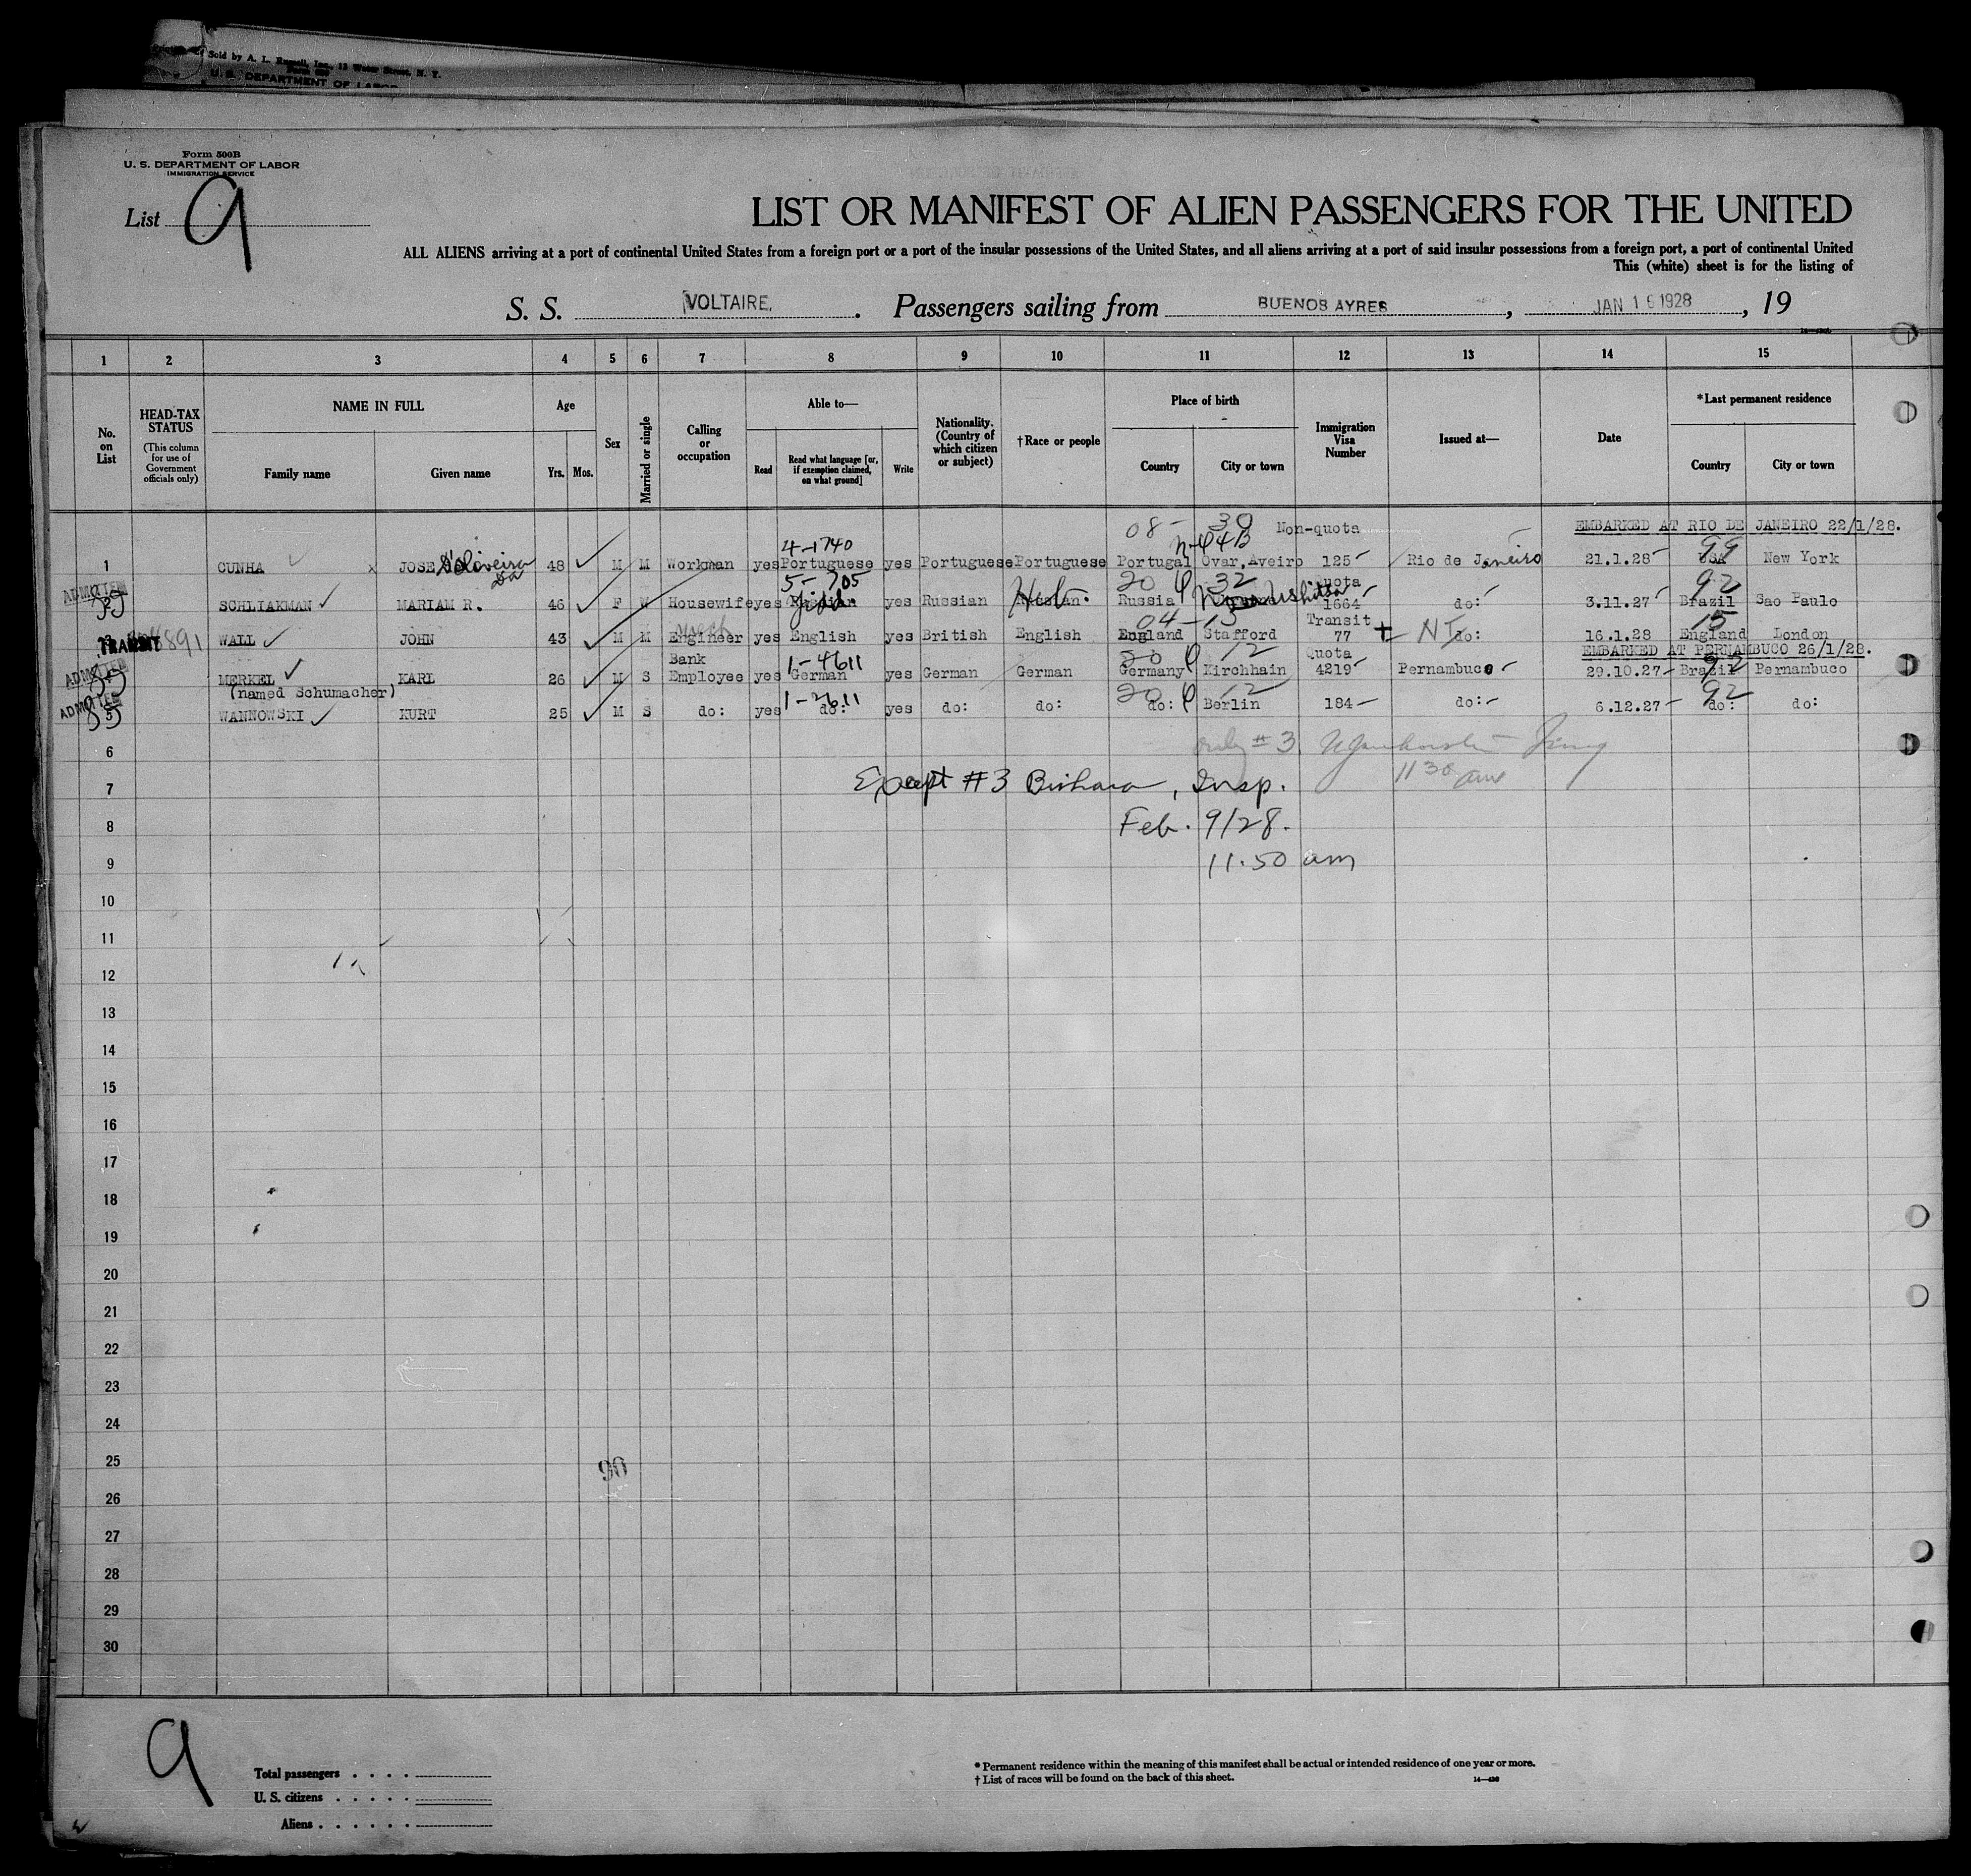 Sold by A. L. Russell, Inc., 12 Water Street, N. Y.
U. S. DEPARTMENT OF LABOR
Form 500B
U. S. DEPARTMENT OF LABOR
IMMIGRATION SERVICE
List 9
LIST OR MANIFEST OF ALIEN PASSENGERS FOR THE UNITED
ALL ALIENS arriving at a port of continental United States from a foreign port or a port of the insular possessions of the United States, and all aliens arriving at a port of said insular possessions from a foreign port, a port of continental United
This (white) sheet is for the listing of
S. S. VOLTAIRE. Passengers sailing from BUENOS AYRES, JAN 16 1928, 19
1 2 3 4 5 6 7 8 9 10 11 12 13 14 15
No. on List
HEAD-TAX STATUS (This column for use of Government officials only)
NAME IN FULL Family name Given name
Age Yrs. Mos.
Sex
Married or single
Calling or occupation
Able to— Read Read what language [or, if exemption claimed, on what ground] Write
Nationality. (Country of which citizen or subject)
†Race or people
Place of birth Country City or town
Immigration Visa Number
Issued at—
Date
*Last permanent residence Country City or town
08- 30 Non-quota EMBARKED AT RIO DE JANEIRO 22/1/28.
4-1740 99
1 CUNHA JOSE D'Oliveira Da 48 M M Workman yes Portuguese yes Portuguese Portuguese Portugal Ovar, Aveiro 125 Rio de Janeiro 21.1.28 USA New York
ADMITTED 5-705 20 32 Quota 92
2 SCHLIAKMAN MARIAM R. 46 F W Housewife yes Russian Yidd. yes Russian Russian Heb. Russia 1664 do: 3.11.27 Brazil Sao Paulo
04-15 Transit 15
TRANSIT 3 WALL JOHN 43 M M Engineer yes English yes British English England Stafford 77 NI do: 16.1.28 England London
Bank 1-4611 12 Quota EMBARKED AT PERNAMBUCO 26/1/28.
ADMITTED 4 MERKEL KARL 26 M S Employee yes German yes German German Germany Kirchhain 4219 Pernambuco 29.10.27 Brazil 92 Pernambuco
(named Schumacher)
ADMITTED 1-2611 20 12 92
5 WANNOWSKI KURT 25 M S do: yes do: yes do: do: do: Berlin 184 do: 6.12.27 do: do:
6 only #3
7 Except #3 Bishara, Insp. 11 30 am
8 Feb. 9/28.
9 11.50 am
10
11
12
13
14
15
16
17
18
19
20
21
22
23
24
25
26
27
28
29
30
9
Total passengers
U. S. citizens
Aliens
* Permanent residence within the meaning of this manifest shall be actual or intended residence of one year or more.
† List of races will be found on the back of this sheet.
14—420